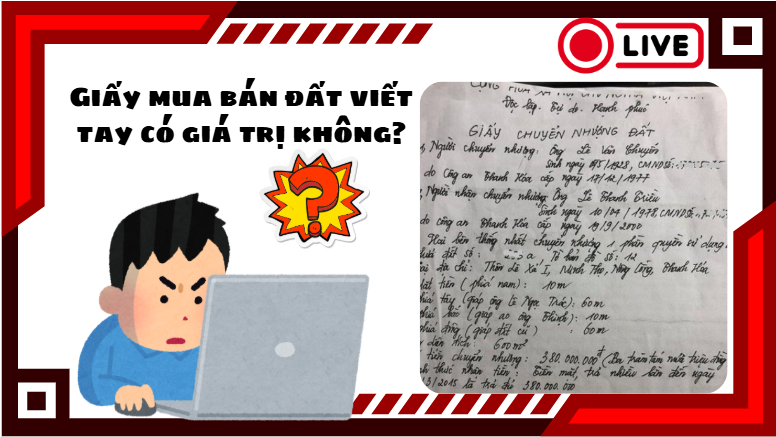 LIVE
Giấy mua bán đất viết
tay có giá trị không?
Độc lập. Tự do. Hạnh phúc
GIẤY CHUYỂN NHƯỢNG ĐẤT
Người chuyển nhượng: Ông Lê Văn Chuyên
Sinh ngày 1928, CMND số:
do công an Thanh Hóa cấp ngày 17/12/1977
Người nhận chuyển nhượng Ông Lê Thanh Triều
Sinh ngày 10/04/1978, CMND số:
do công an Thanh Hóa cấp ngày 19/9/2000
Hai bên thống nhất chuyển nhượng 1 phần quyền sử dụng
đất số: Tờ bản đồ số: 12
địa chỉ: Thôn Lê Xá I, Minh Thọ, Nông Cống, Thanh Hóa
tiền (phía nam): 10m
phía tây (giáp ông Lê Ngọc Trác): 60m
(giáp ao ông Thịnh): 10m
phía đông (giáp đất cũ): 60m
diện tích: 600m²
tiền chuyển nhượng: 380.000.000đ (Ba trăm tám mươi triệu đồng
thức nhận tiền: Tiền mặt, trả nhiều lần đến ngày
3/2015 là trả đủ 380.000.000